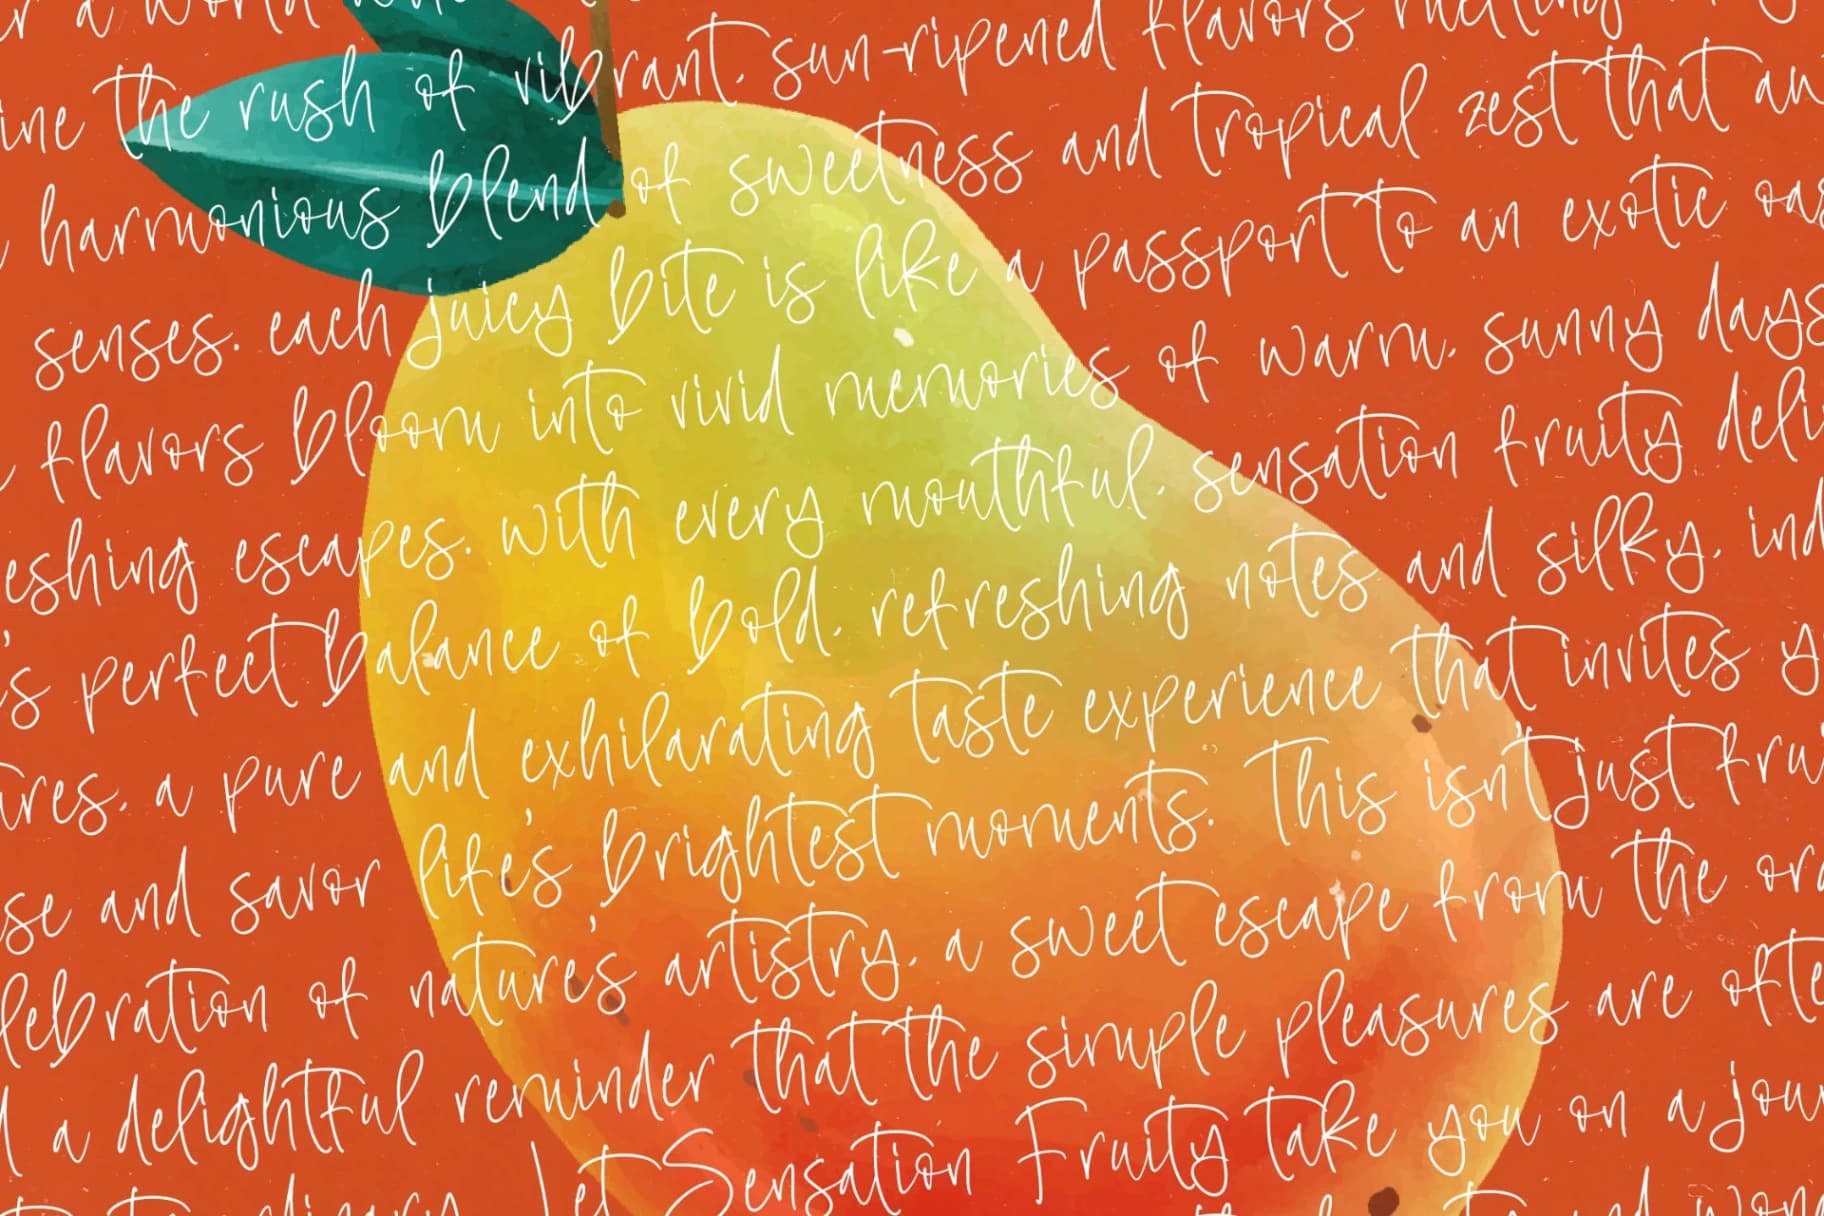 a world
the rush of vibrant, sun-ripened flavors melting
harmonious blend of sweetness and tropical zest that
senses. each juicy bite is like a passport to an exotic
flavors bloom into vivid memories of warm, sunny days
escapes. with every mouthful, sensation fruity
perfect balance of bold, refreshing notes and silky,
a pure and exhilarating taste experience that invites
and savor life's brightest moments. This isn't just
of nature's artistry, a sweet escape from the
a delightful reminder that the simple pleasures are
Let Sensation Fruity take you on a